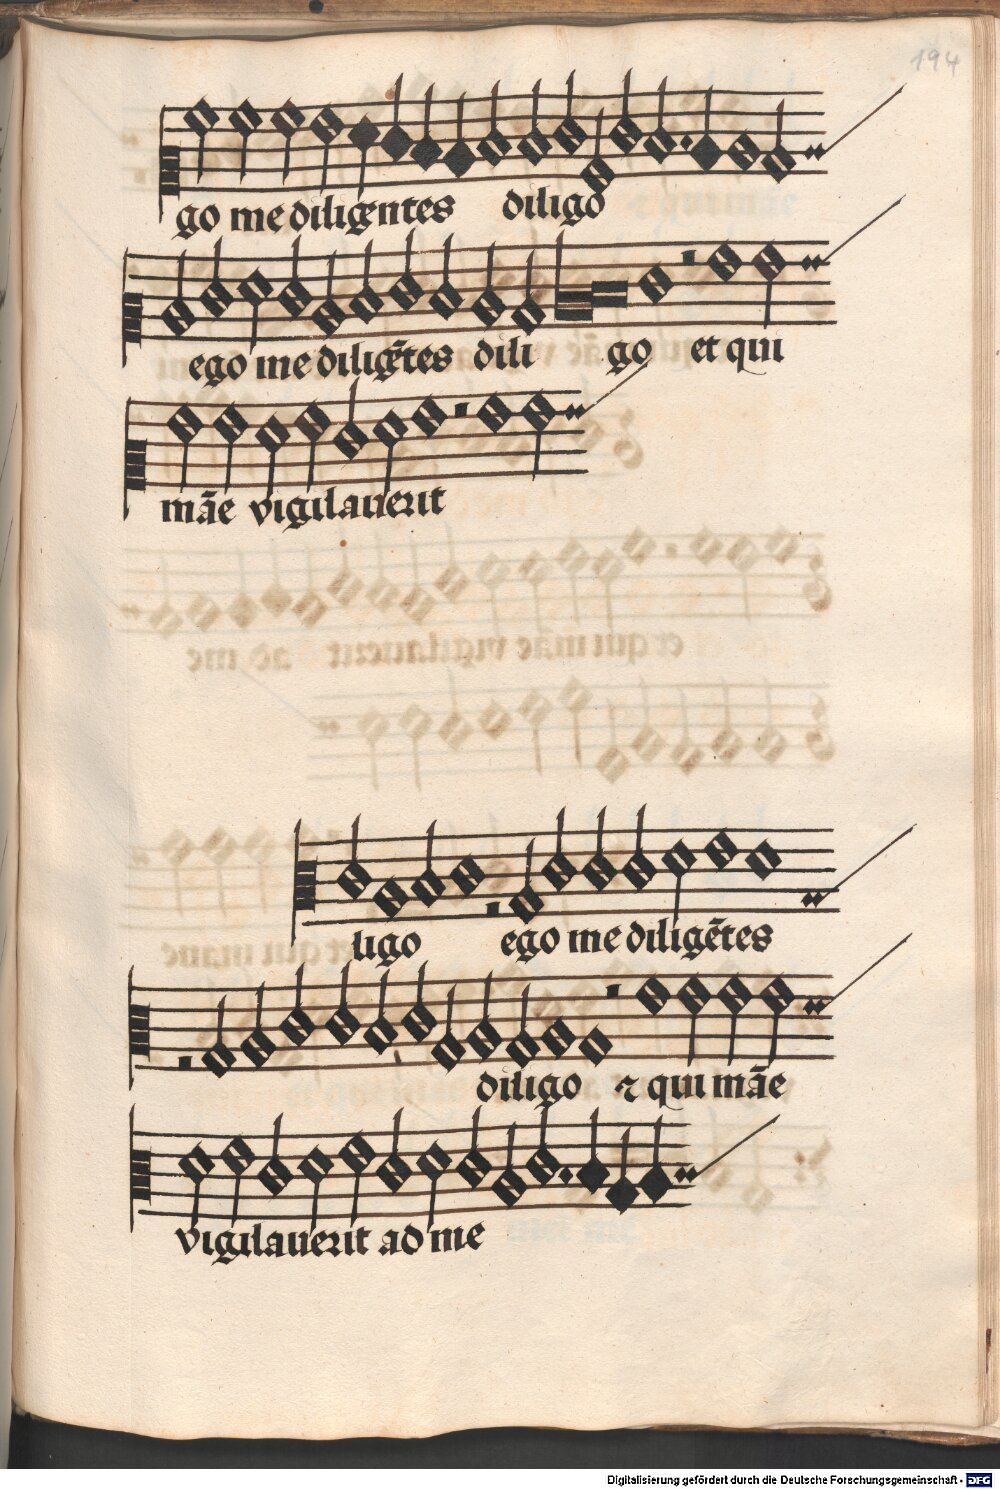 194
go me diligentes diligo
ego me diligẽtes dili go et qui
mãe vigilauerit
ligo ego me diligẽtes
diligo ⁊ qui mãe
vigilauerit ad me
Digitalisierung gefördert durch die Deutsche Forschungsgemeinschaft - DFG